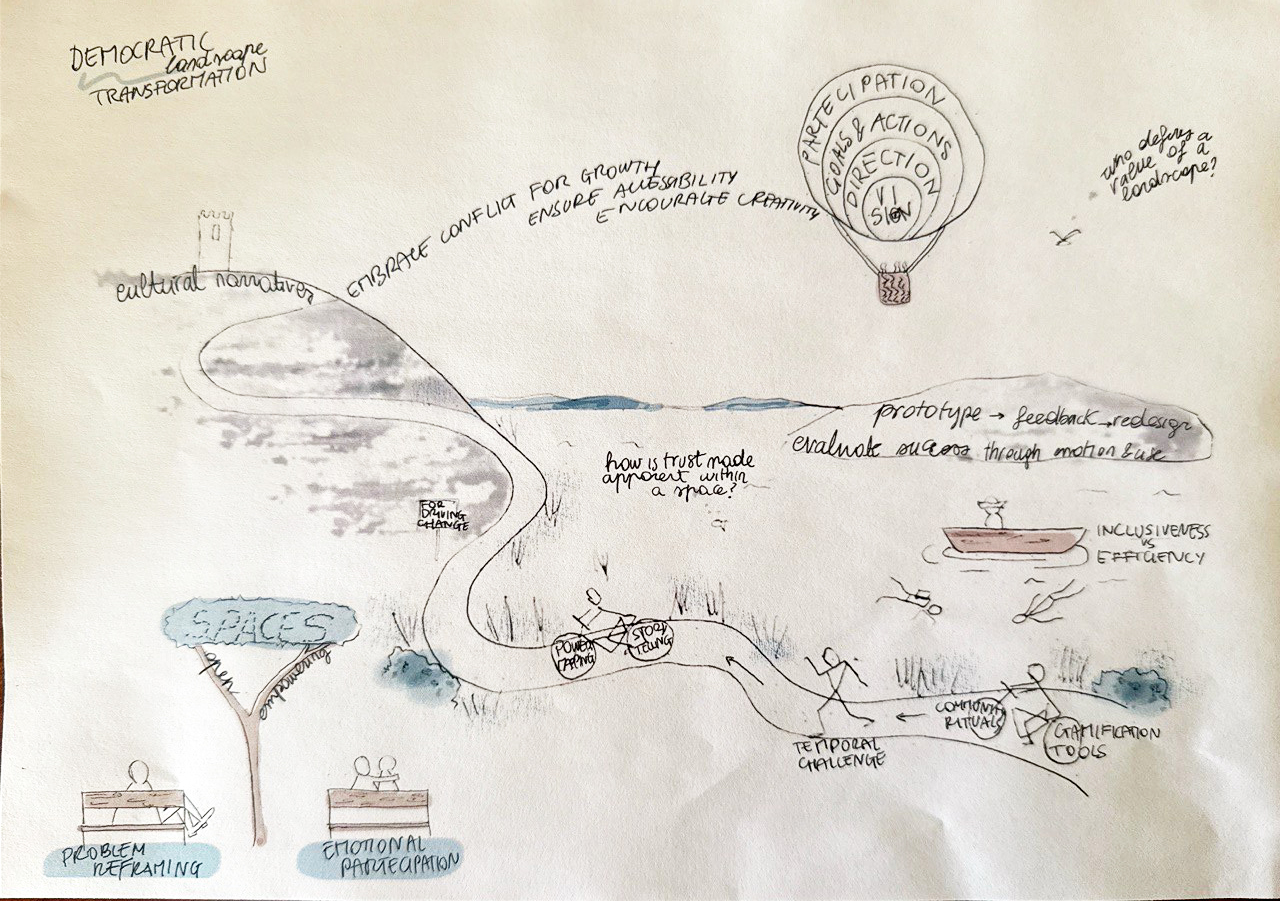 DEMOCRATIC
landscape
TRANSFORMATION
PARTECIPATION
GOALS & ACTIONS
DIRECTION
VI
SION
who defines a
value of a
landscape?
EMBRACE CONFLICT FOR GROWTH
ENSURE ACCESSIBILITY
ENCOURAGE CREATIVITY
cultural narratives
prototype → feedback → redesign
evaluate success through emotion & use
how is trust made
apparent within
a space?
FOR
DRIVING
CHANGE
INCLUSIVENESS
vs
EFFICIENCY
SPACES
open
empowering
POWER
MAPING
STORY
TELLING
COMMUNITY
RITUALS
GAMIFICATION
TOOLS
TEMPORAL
CHALLENGE
PROBLEM
REFRAMING
EMOTIONAL
PARTECIPATION